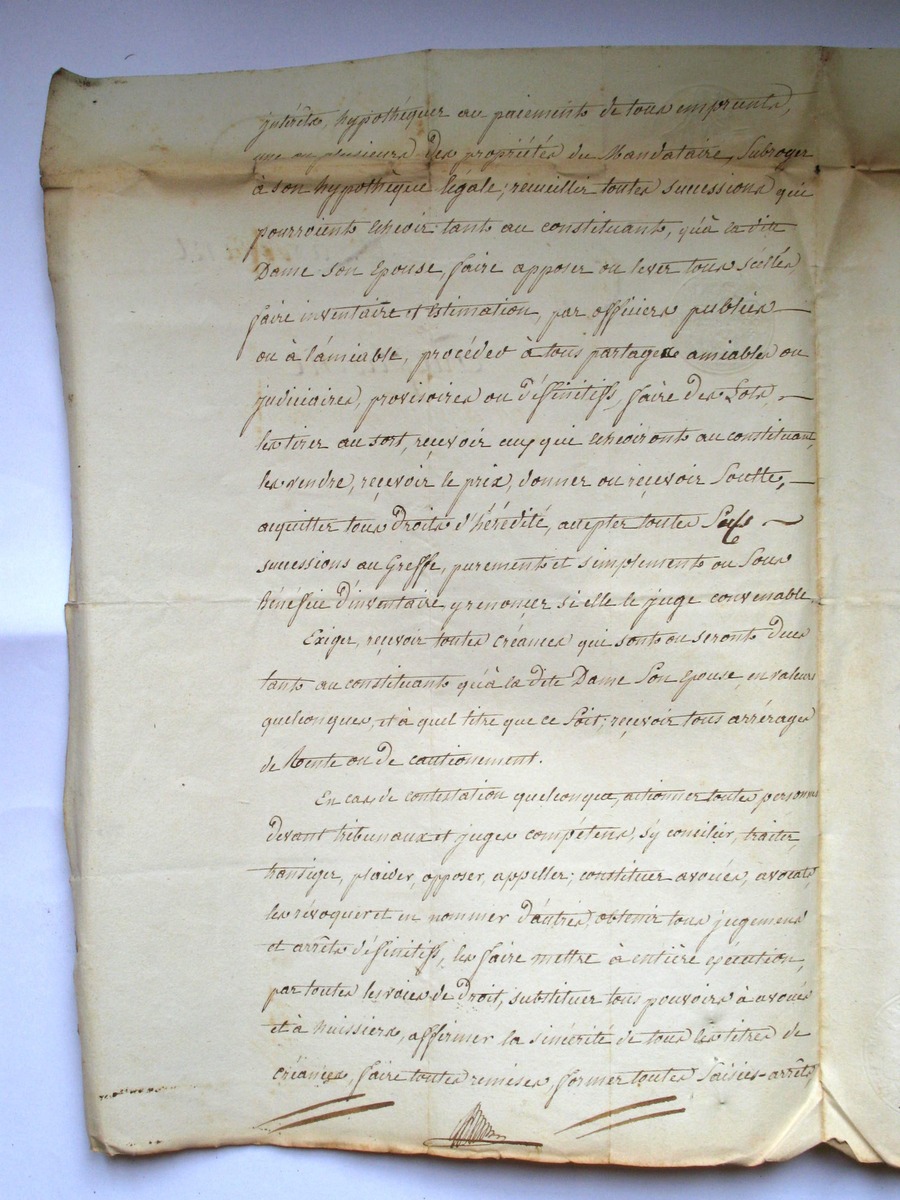 intérêts, hypothéquer au paiement de tous emprunts,
une ou plusieurs des propriétés du Mandataire, Subroger
à son hypothèque légale; recueillir toutes successions qui
pourroient échéoir tant au constituant, qu'à la dite
Dame son Epouse, faire apposer ou lever tous scellés,
faire inventaire et Estimation, par officiers publics —
ou à l'amiable, procéder à tous partages amiables ou
judiciaires, provisoires ou définitifs, faire des Lots, —
les tirer au sort, recevoir ceux qui échéoiront au constituant,
les vendre, reçevoir le prix, donner ou reçevoir Soulte, —
acquitter tous Droits d'hérédité, accepter toutes —
successions au Greffe, purement et simplement ou Sous
Bénéfice d'inventaire y renoncer si elle le juge convenable.
Exiger, reçevoir toutes créances qui sont ou seront dues
tant au constituant qu'à la dite Dame Son Epouse, en valeurs
quelconques, et à quel titre que ce Soit; reçevoir tous arrérages
de Rente ou de cautionement.
En cas de contestation quelconque, actionner toutes personnes
devant tribunaux et juges compétens, s'y concilier, traiter
transiger, plaider, opposer, appeller; constituer avoués, avocats,
les révoquer et en nommer d'autres, obtenir tous jugemens
et arrêts définitifs, les faire mettre à entière exécution,
par toutes les voies de Droit, substituer tous pouvoirs à avoués
et à huissiers, affirmer la sincérité de tous les titres de
créances, faire toutes remises, former toutes Saisies-arrêts